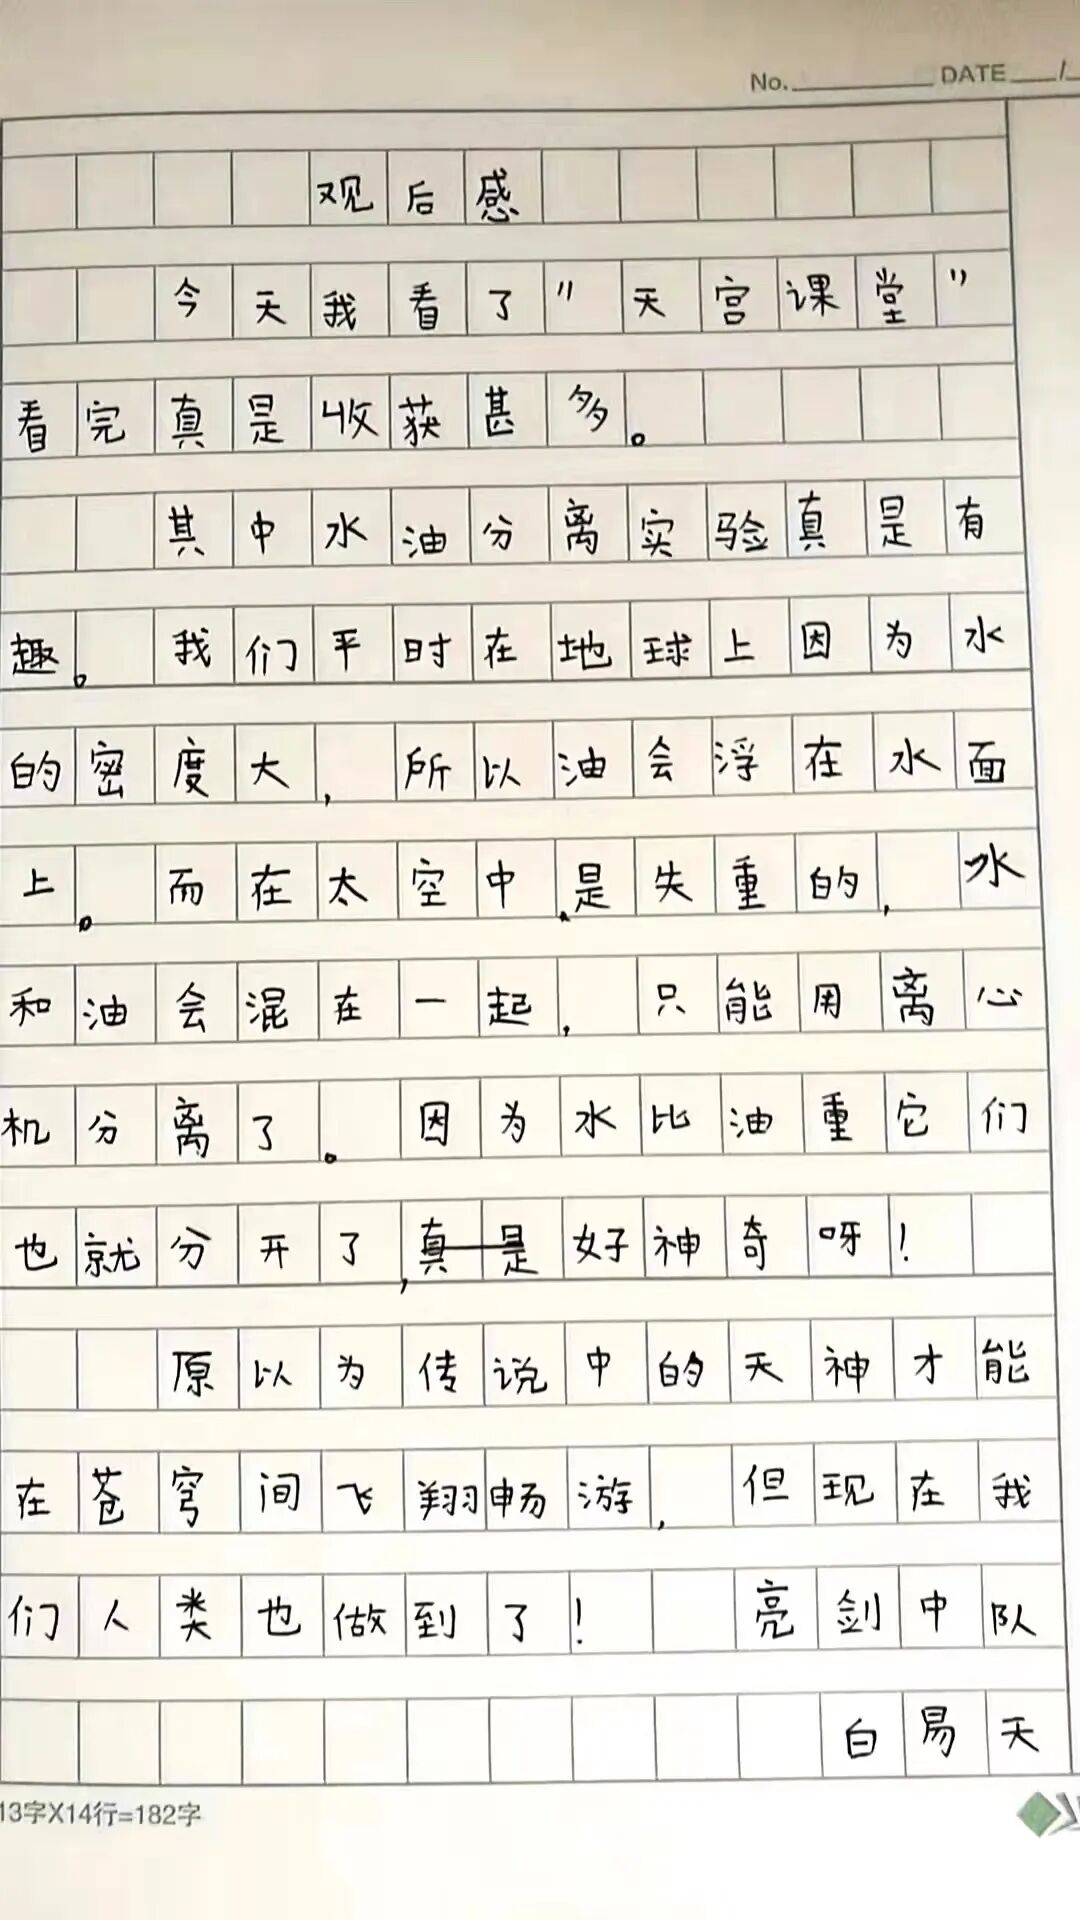 No. DATE /
观后感
今天我看了"天宫课堂"
看完真是收获甚多。
其中水油分离实验真是有
趣。我们平时在地球上因为水
的密度大,所以油会浮在水面
上。而在太空中,是失重的,水
和油会混在一起,只能用离心
机分离了。因为水比油重它们
也就分开了,真是好神奇呀!
原以为传说中的天神才能
在苍穹间飞翔畅游,但现在我
们人类也做到了! 亮剑中队
白易天
13字X14行=182字